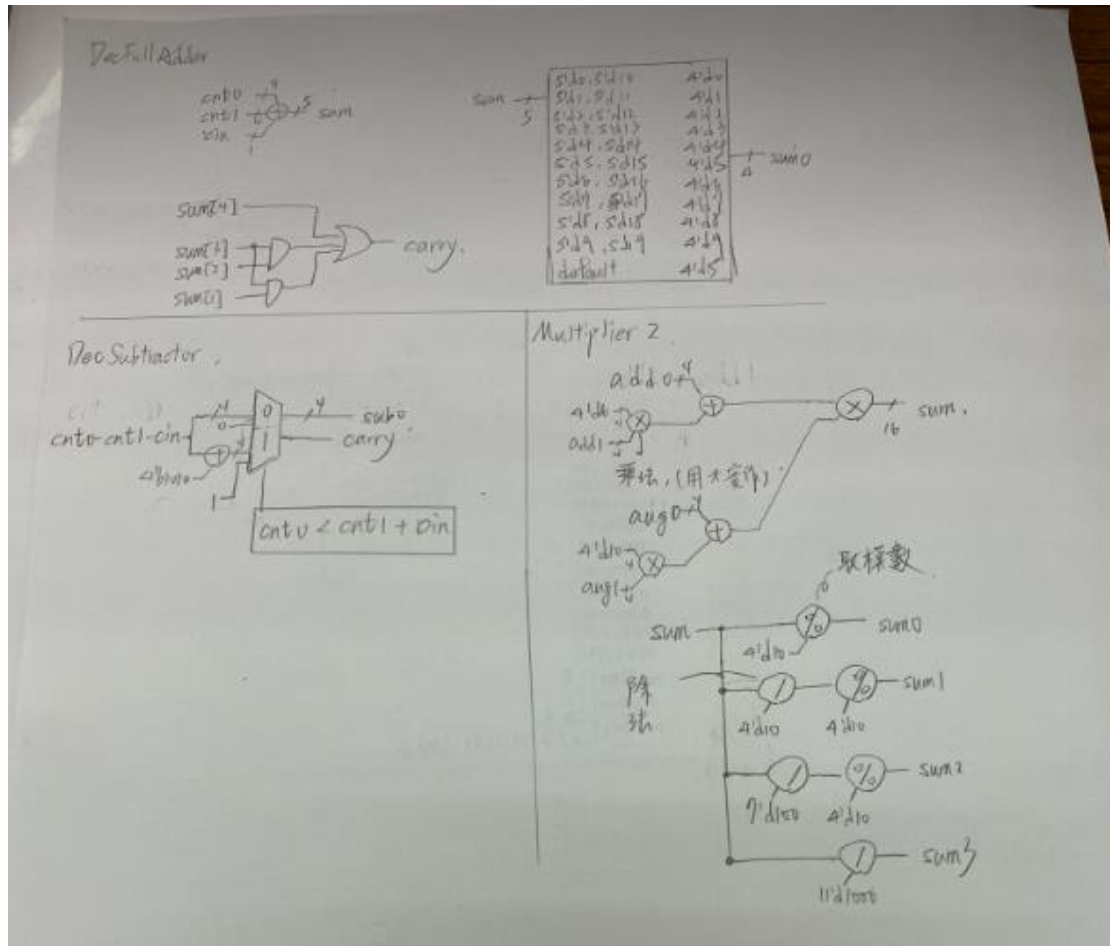 DecFullAdder
cnt0 4
cnt1 4 5 sum
cin
1
sum 5
5'd0, 5'd10 4'd0
5'd1, 5'd11 4'd1
5'd2, 5'd12 4'd2
5'd3, 5'd13 4'd3
5'd4, 5'd14 4'd4
5'd5, 5'd15 4'd5
5'd6, 5'd16 4'd6
5'd7, 5'd17 4'd7
5'd8, 5'd18 4'd8
5'd9, 5'd19 4'd9
default 4'd5
4 sum0
sum[4]
sum[3]
sum[2]
sum[1]
carry.
Dec Subtractor.
cnt0-cnt1-cin
4 0 4 sub0
0 1 carry
4'b1010
1
cnt0 < cnt1 + cin
Multiplier 2
add0 4
4'd10
add1
sum.
16
乘法,(用*實作)
aug0 4
4'd10
aug1
取模數
sum % sum0
4'd10
除法
/ % sum1
4'd10 4'd10
/ % sum2
7'd100 4'd10
/ sum3
11'd1000